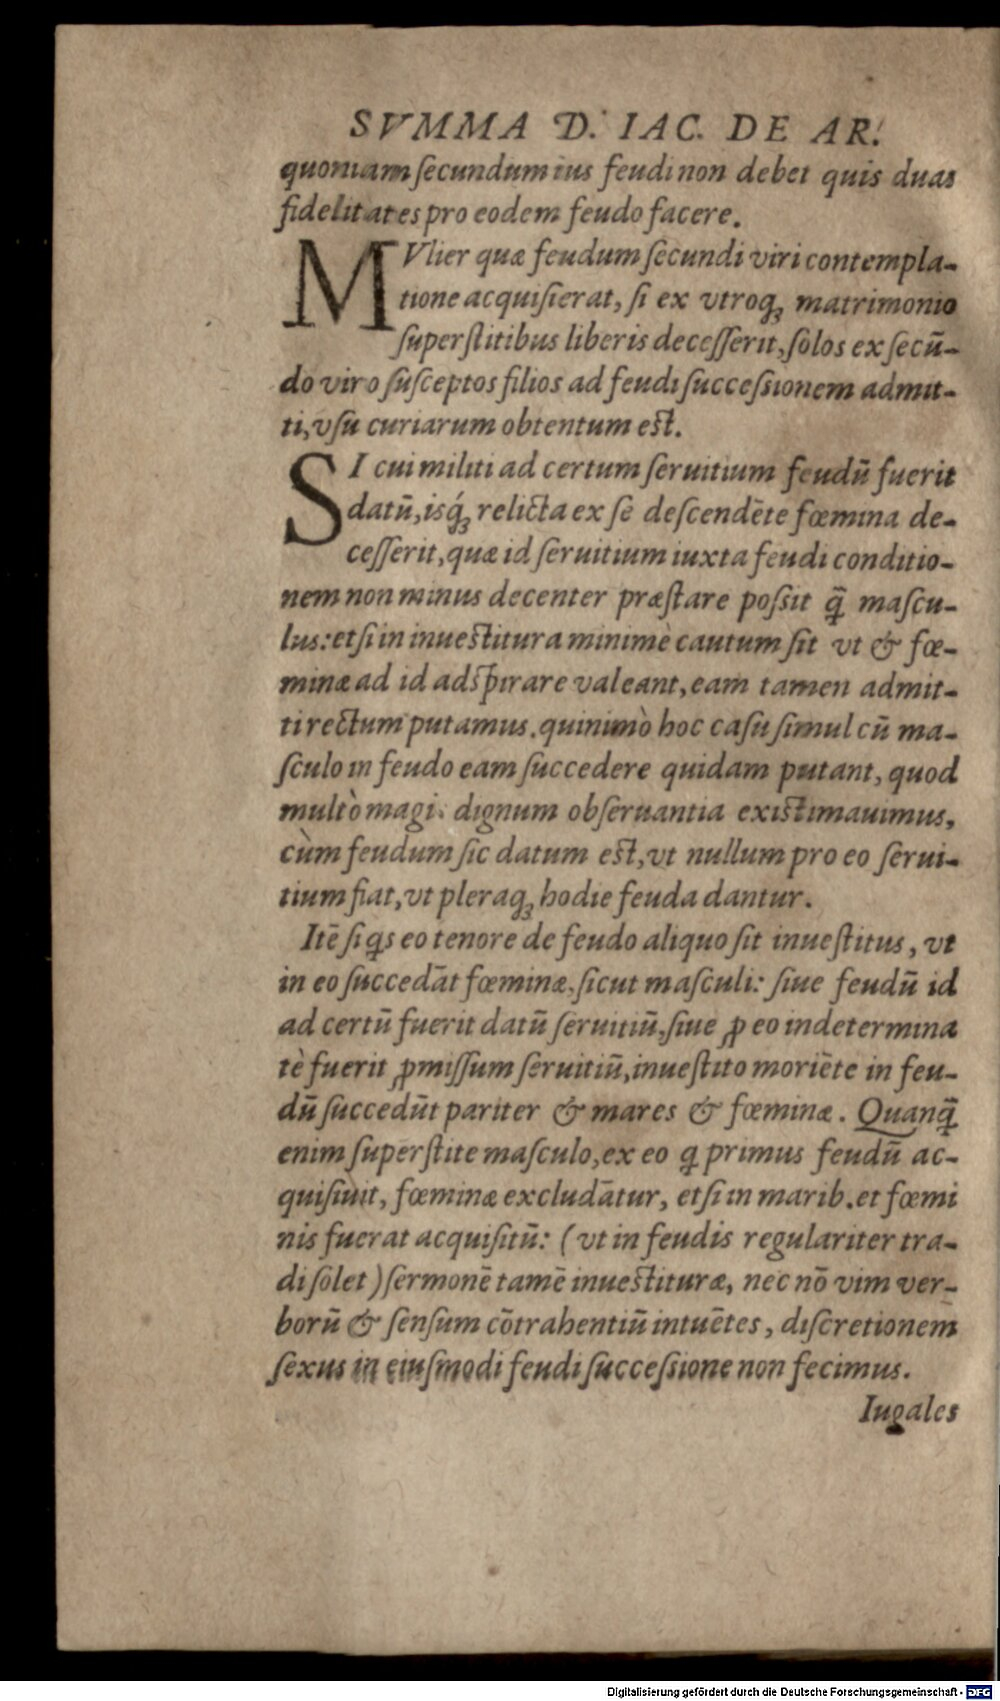 SVMMA D. IAC. DE AR.
quoniam ſecundum ius feudi non debet quis duas
fidelitates pro eodem feudo facere.
MVlier quæ feudum ſecundi viri contempla-
tione acquiſierat, ſi ex vtroq; matrimonio
ſuperſtitibus liberis deceſſerit, ſolos ex ſecū-
do viro ſuſceptos filios ad feudi ſucceſsionem admit-
ti, vſu curiarum obtentum eſt.
SI cui militi ad certum ſeruitium feudū fuerit
datū, isq́; relicta ex ſe deſcendēte fœmina de-
ceſſerit, quæ id ſeruitium iuxta feudi conditio-
nem non minus decenter præſtare poſsit q̃ maſcu-
lus: et ſi in inueſtitura minimè cautum ſit vt & fœ-
minæ ad id adſpirare valeant, eam tamen admit-
ti rectum putamus. quinimò hoc caſu ſimul cū ma-
ſculo in feudo eam ſuccedere quidam putant, quod
multò magis dignum obſeruantia exiſtimauimus,
cùm feudum ſic datum eſt, vt nullum pro eo ſerui-
tium fiat, vt pleraq; hodie feuda dantur.
Itē ſi q̃s eo tenore de feudo aliquo ſit inueſtitus, vt
in eo ſuccedāt fœminæ, ſicut maſculi: ſiue feudū id
ad certū fuerit datū ſeruitiū, ſiue ꝓ eo indetermina
tè fuerit ꝓmiſſum ſeruitiū, inueſtito moriēte in feu-
dū ſuccedūt pariter & mares & fœminæ. Quanq̃
enim ſuperſtite maſculo, ex eo q primus feudū ac-
quiſiuit, fœminæ excludātur, etſi in marib. et fœmi
nis fuerat acquiſitū: (vt in feudis regulariter tra-
di ſolet) ſermonē tamē inueſtituræ, nec nō vim ver-
borū & ſenſum cōtrahentiū intuētes, diſcretionem
ſexus in eiuſmodi feudi ſucceſsione non fecimus.
Iugales
Digitalisierung gefördert durch die Deutsche Forschungsgemeinschaft - DFG